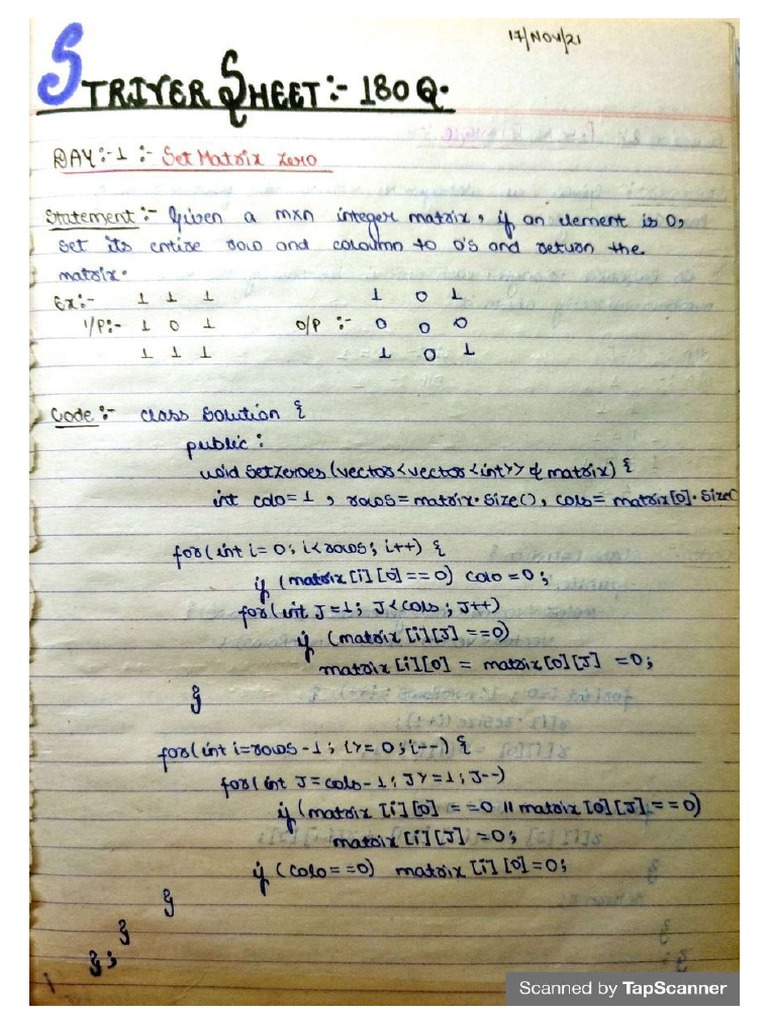 17/NOV/21
STRIVER SHEET:- 180 Q.
DAY:-1 :- Set Matrix Zero
Statement:- Given a mxn integer matrix, if an element is 0,
set its entire row and coloumn to 0's and return the
matrix.
Ex:- 1 1 1 1 0 1
I/P:- 1 0 1 O/P :- 0 0 0
1 1 1 1 0 1
Code:- class Solution {
public :
void SetZeroes (vector<vector<int>> & matrix) {
int col0 = 1 , rows = matrix.size(), cols = matrix[0].size(
for(int i= 0; i<rows; i++) {
if (matrix [i] [0] == 0) col0 = 0;
for(int J=1; J<cols ; J++)
if (matrix [i] [J] ==0)
matrix [i] [0] = matrix [0] [J] =0;
}
for(int i=rows -1; i>= 0; i--) {
for(int J=cols-1; J>=1; J--)
if (matrix [i] [0] ==0 || matrix [0] [J] ==0)
matrix [i] [J] =0;
if (col0 ==0) matrix [i] [0] =0;
}
}
};
Scanned by TapScanner